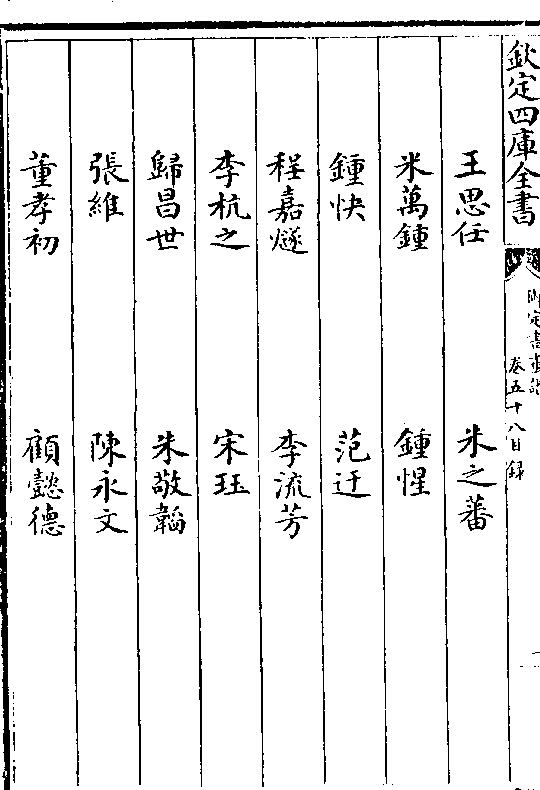 欽定四庫全書
御定書畫譜
卷五十八目録
王思任 朱之蕃
米萬鍾 鍾惺
鍾快 范迂
程嘉燧 李流芳
李杭之 宋珏
歸昌世 朱敬韜
張維 陳永文
董孝初 顧懿德